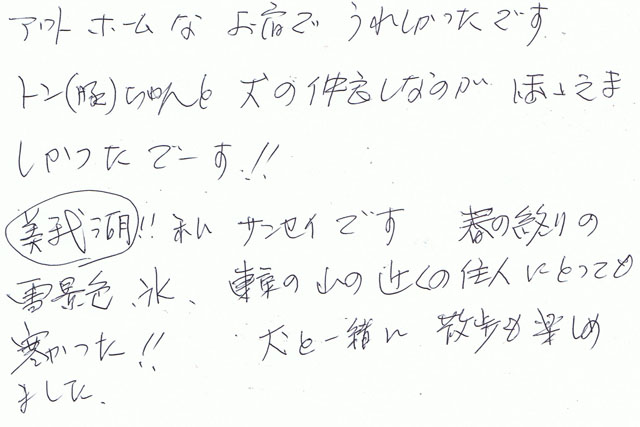 アットホームな お宿で うれしかったです
トン(豚)ちゃんと 犬の仲良しなのが ほほえま
しかったでーす!!
美我湖!! 私 サンセイです 春の終りの
雪景色、氷、東京の山の近くの住人にとっても
寒かった!! 犬と一緒に 散歩も楽しめ
ました.